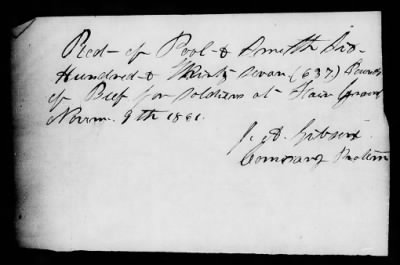 Recd of Pool & Smith Six
Hundred & Thirty Seven (637) Pounds
of Beef for Soldiers at Fair Ground
Novem. 9th 1861.
J. A. Gibson